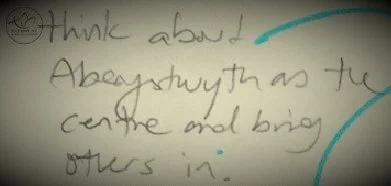 think about
Aberystwyth as the
centre and bring
others in.